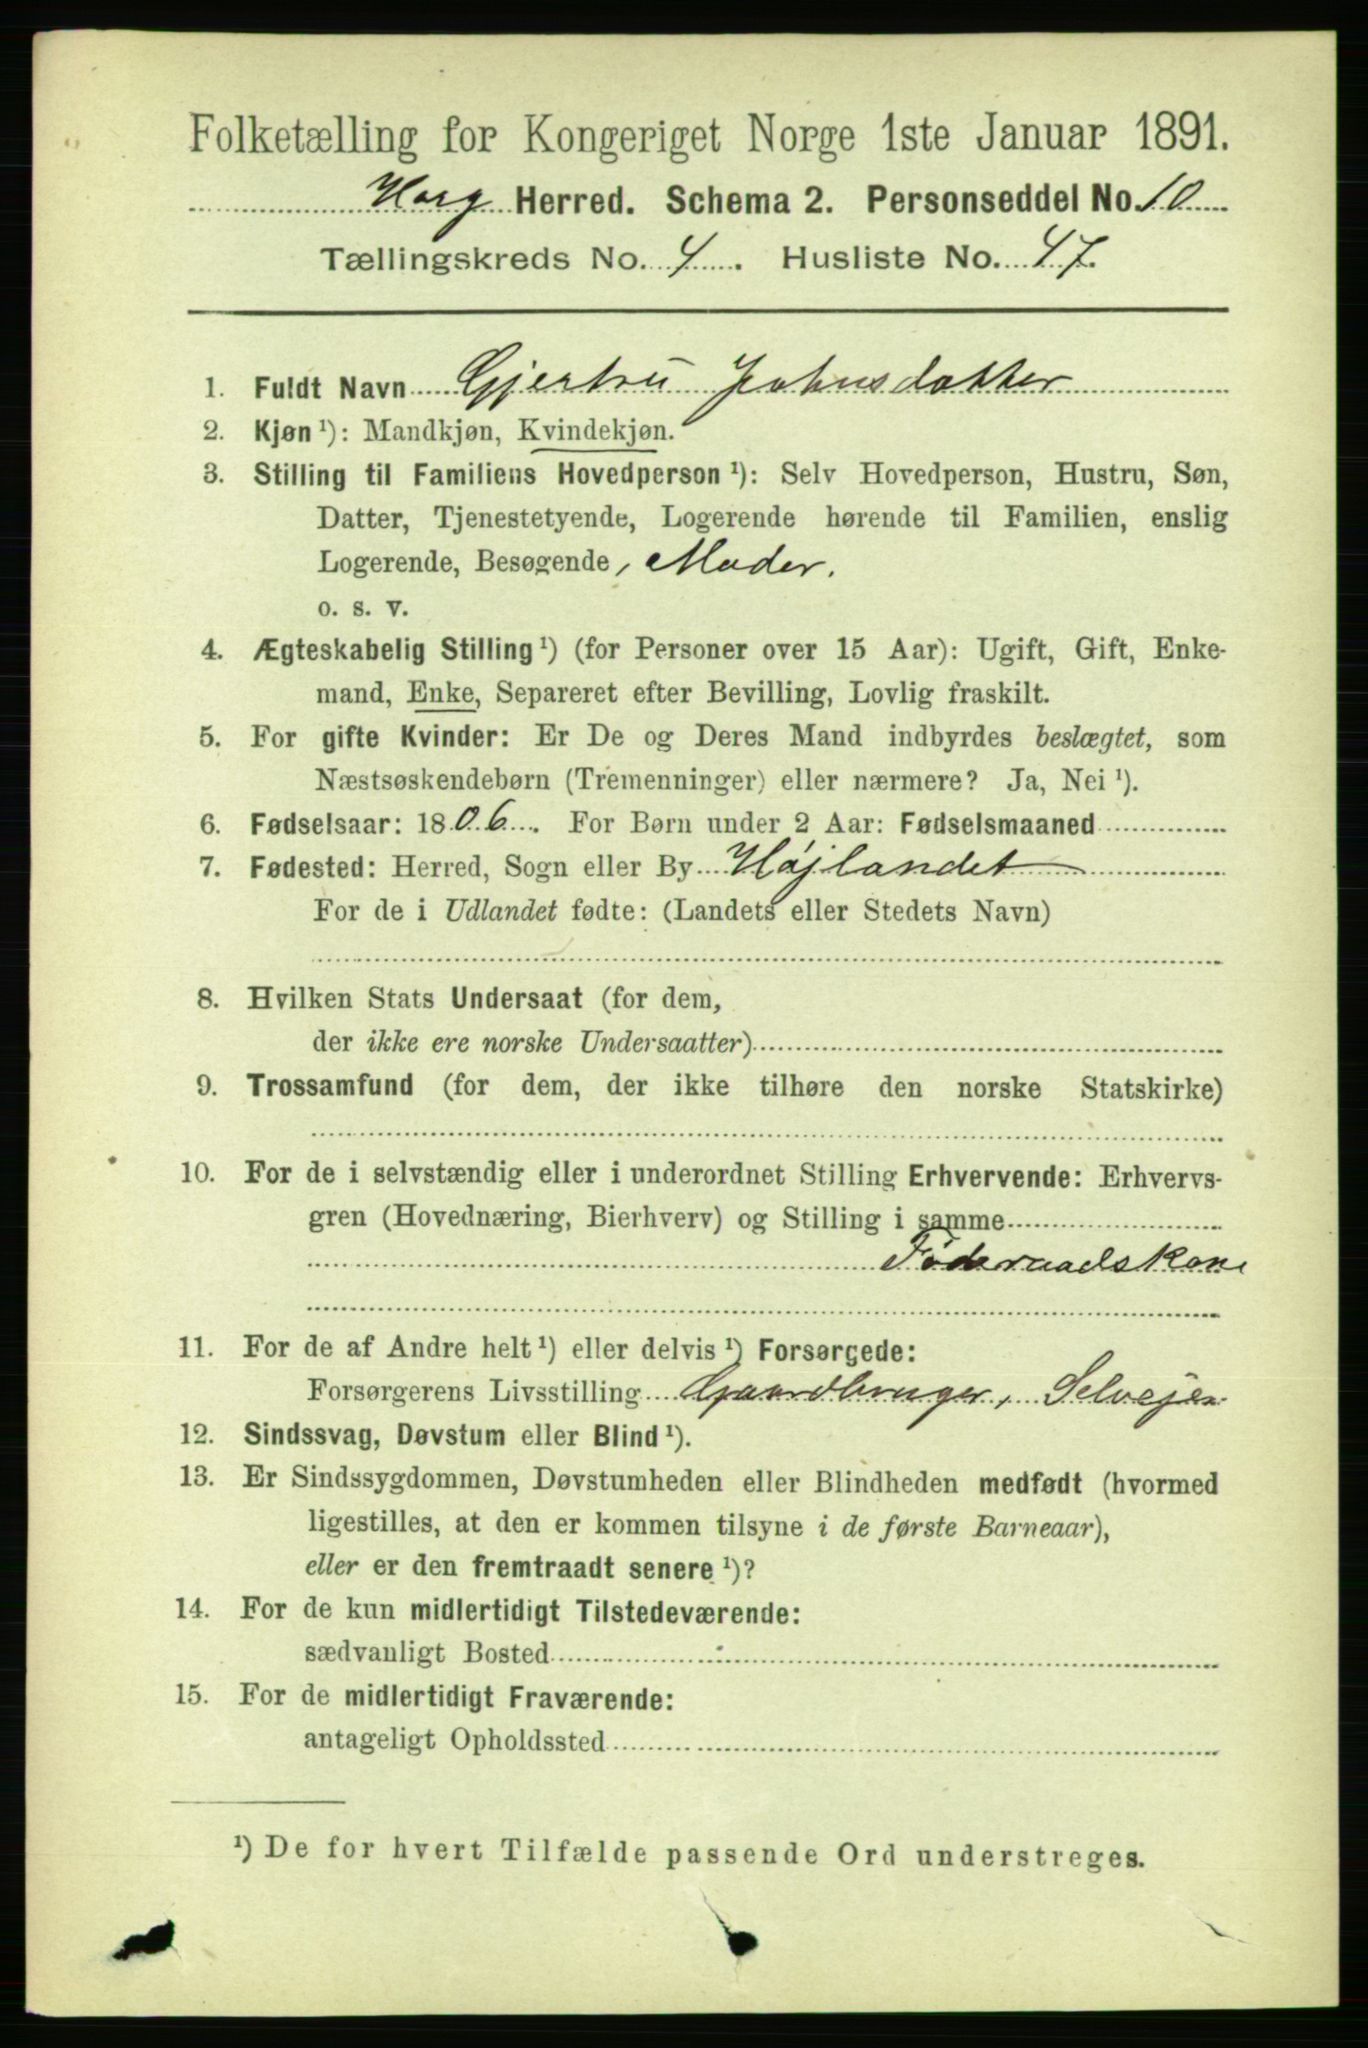 Folketælling for Kongeriget Norge 1ste Januar 1891.
Horg Herred. Schema 2. Personseddel No. 10
Tællingskreds No. 4. Husliste No. 47.
1. Fuldt Navn Gjertru Johnsdatter
2. Kjøn ¹): Mandkjøn, Kvindekjøn.
3. Stilling til Familiens Hovedperson ¹): Selv Hovedperson, Hustru, Søn,
Datter, Tjenestetyende, Logerende hørende til Familien, enslig
Logerende, Besøgende, Moder.
o. s. v.
4. Ægteskabelig Stilling ¹) (for Personer over 15 Aar): Ugift, Gift, Enke-
mand, Enke, Separeret efter Bevilling, Lovlig fraskilt.
5. For gifte Kvinder: Er De og Deres Mand indbyrdes beslægtet, som
Næstsøskendebørn (Tremenninger) eller nærmere? Ja, Nei ¹).
6. Fødselsaar: 1806. For Børn under 2 Aar: Fødselsmaaned
7. Fødested: Herred, Sogn eller By Højlandet
For de i Udlandet fødte: (Landets eller Stedets Navn)
8. Hvilken Stats Undersaat (for dem,
der ikke ere norske Undersaatter)
9. Trossamfund (for dem, der ikke tilhøre den norske Statskirke)
10. For de i selvstændig eller i underordnet Stilling Erhvervende: Erhvervs-
gren (Hovednæring, Bierhverv) og Stilling i samme
Føderaadskone
11. For de af Andre helt ¹) eller delvis ¹) Forsørgede:
Forsørgerens Livsstilling Gaardbruger, Selvejer
12. Sindssvag, Døvstum eller Blind ¹).
13. Er Sindssygdommen, Døvstumheden eller Blindheden medfødt (hvormed
ligestilles, at den er kommen tilsyne i de første Barneaar),
eller er den fremtraadt senere ¹)?
14. For de kun midlertidigt Tilstedeværende:
sædvanligt Bosted
15. For de midlertidigt Fraværende:
antageligt Opholdssted
¹) De for hvert Tilfælde passende Ord understreges.